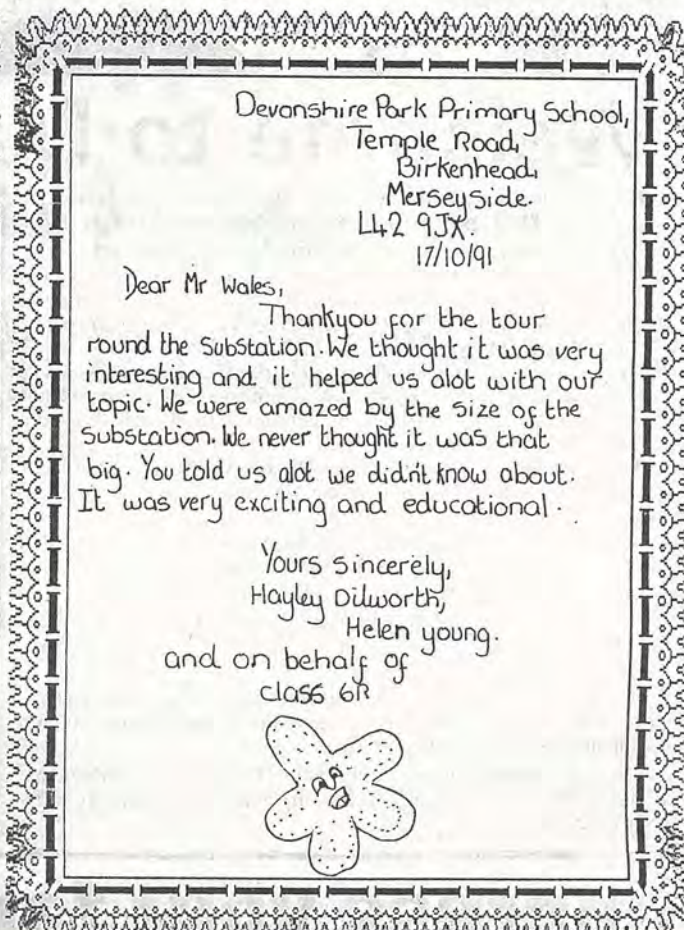 Devonshire Park Primary School,
Temple Road,
Birkenhead,
Merseyside.
L42 9JX.
17/10/91
Dear Mr Wales,
Thankyou for the tour
round the Substation. We thought it was very
interesting and it helped us alot with our
topic. We were amazed by the size of the
substation. We never thought it was that
big. You told us alot we didn't know about.
It was very exciting and educational.
Yours sincerely,
Hayley Dilworth,
Helen young.
and on behalf of
class 6R